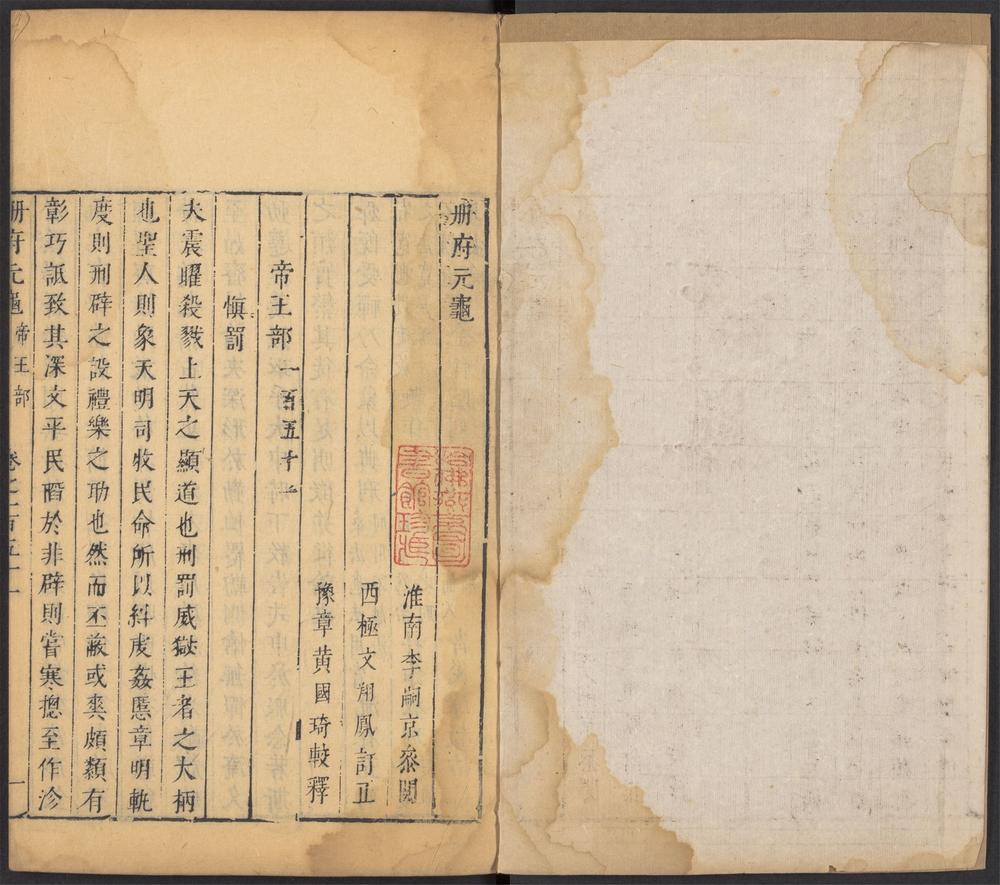 冊府元龜
淮南李嗣京參閱
西極文翔鳳訂正
豫章黃國琦較釋
帝王部 一百五十一
慎罰
夫震曜殺戮上天之顯道也刑罰威獄王者之大柄
也聖人則象天明司收民命所以糾虔姦慝章明軌
度則刑辟之設禮樂之助也然而丕蔽或爽頗纇有
彰巧詆致其深文平民於非辟則嘗寒揔至作沴
冊府元龜 帝王部 卷之一百五十一 一